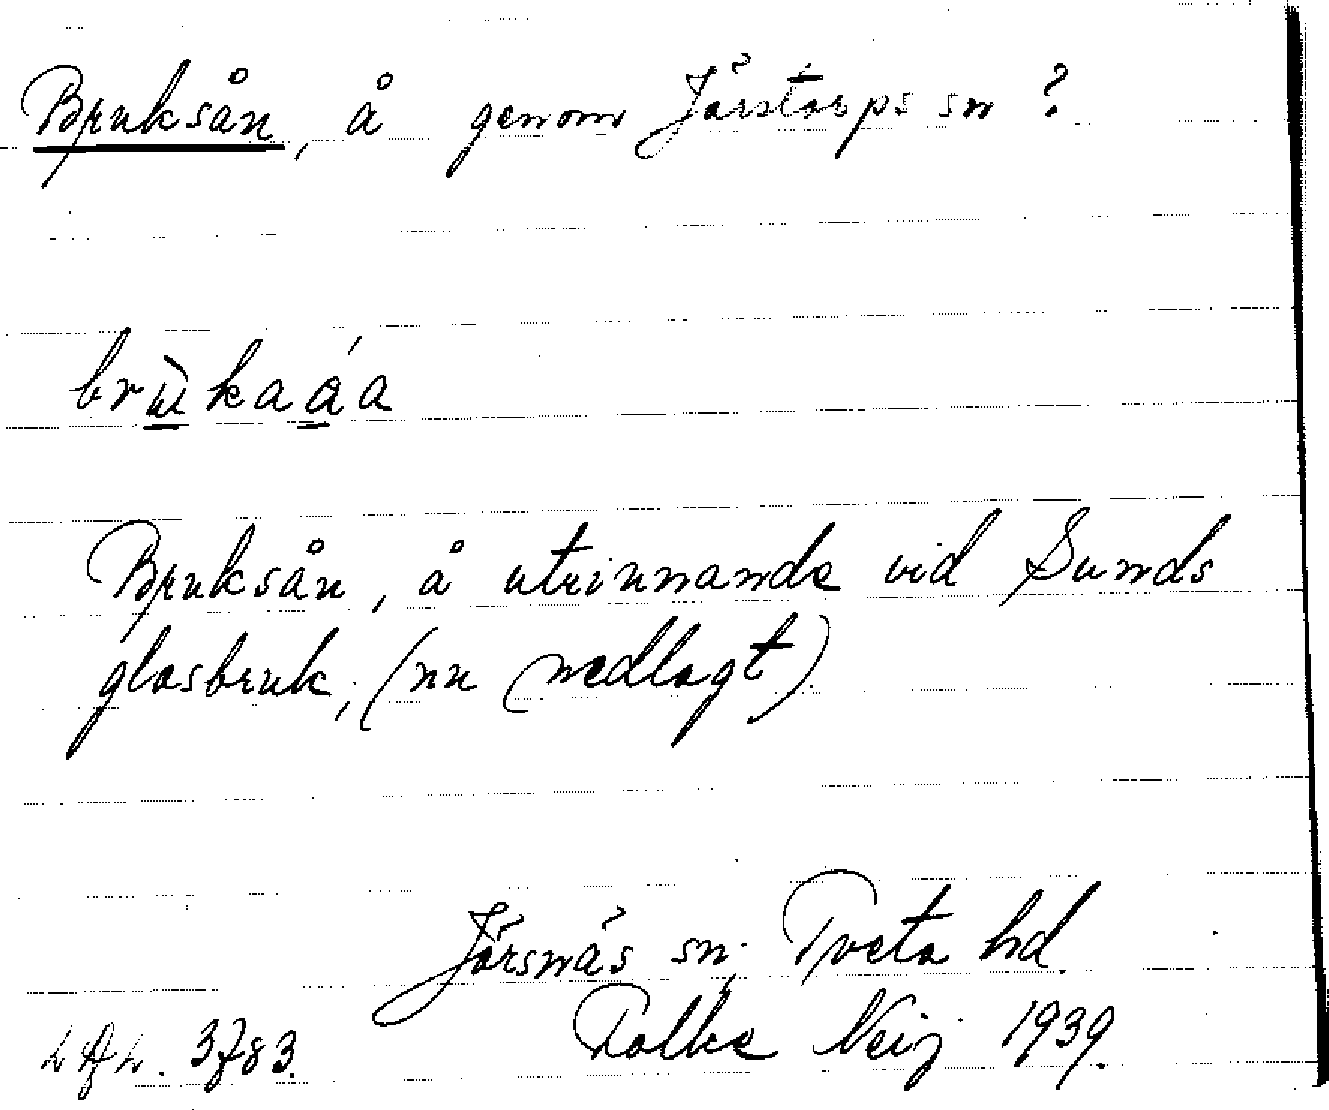 Bruksån, å genom Järstorps sn ?
brùkaáa
Bruksån, å utrinnande vid Sunds
glasbruk, (nu nedlagt)
Järsnäs sn, Tveta hd.
Folke Neij 1939.
LAL. 3783.